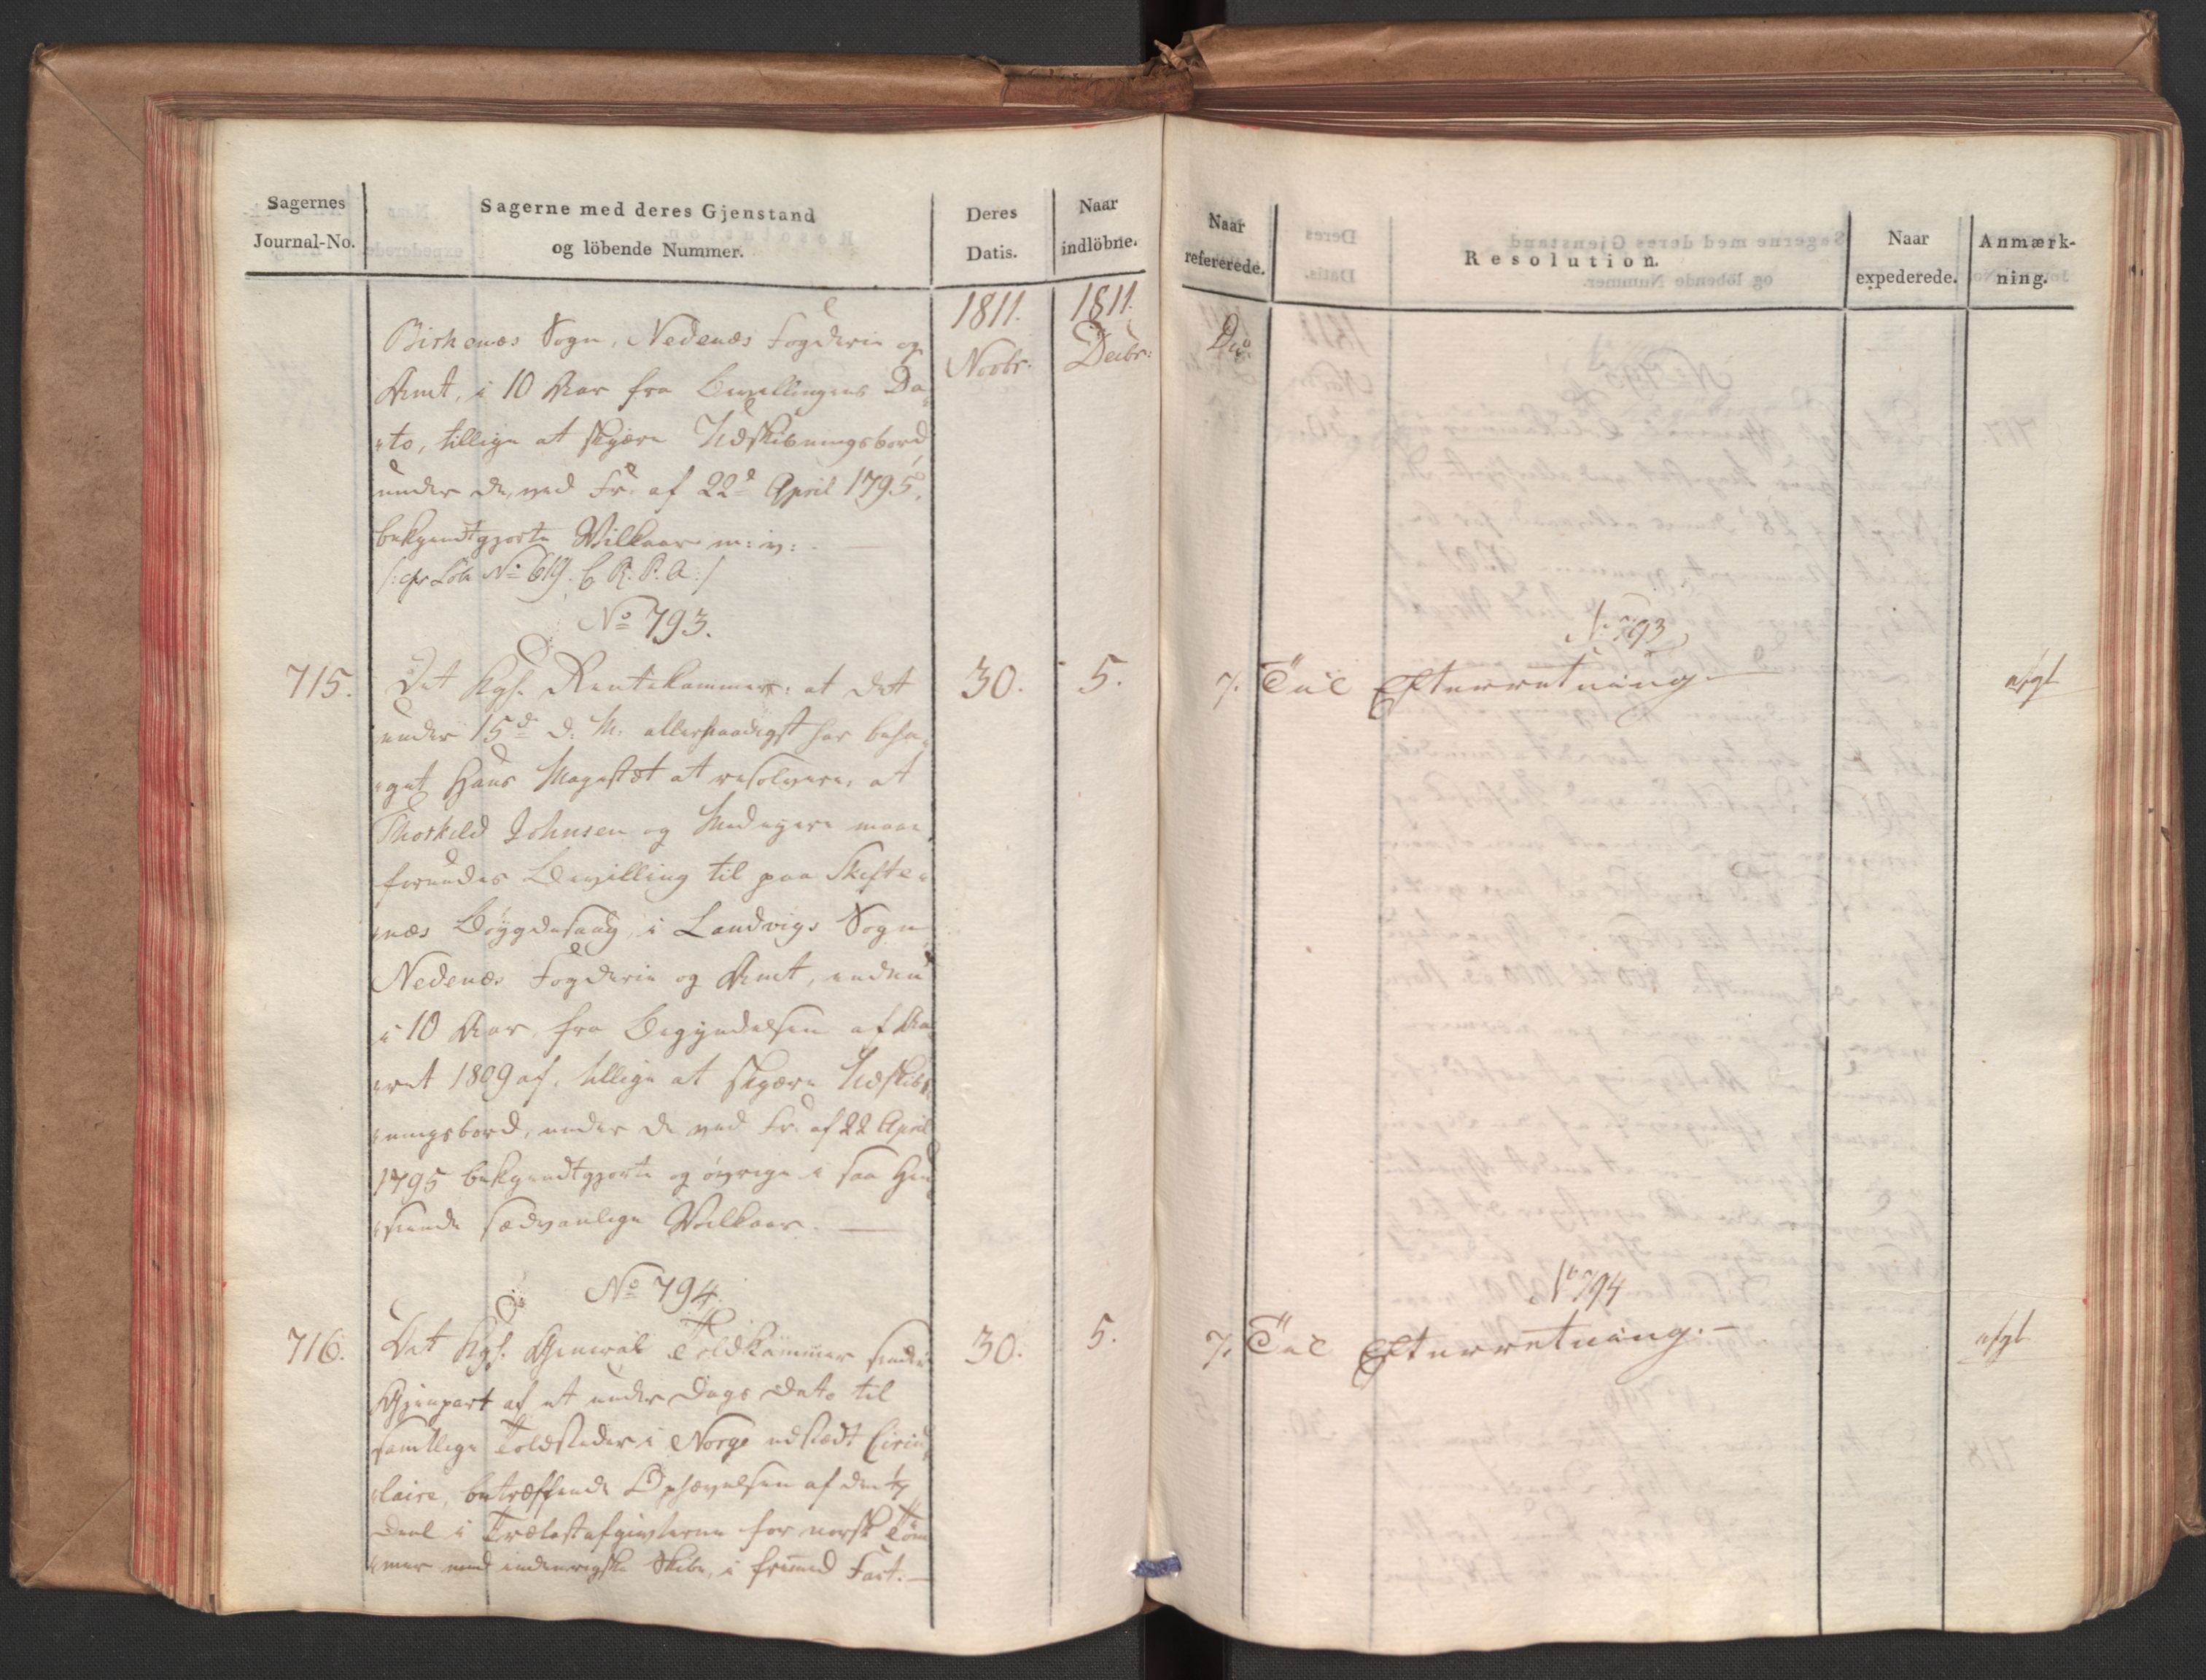 Sagernes
Journal-No.
Sagerne med deres Gjenstand
og löbende Nummer.
Deres
Datis.
Naar
indlöbne.
1811.
Novbr.
1811.
Decbr:
Birkenæs Sogn, Nedenæs Fogderie og
Amt, i 10 Aar fra Bevillingens Da-
"to, tillige at skjære Udskibningsbord,
under de, ved Fr. af 22d April 1795,
bekjendtgjorte Vilkaar m: v: . —
/: cfr Löb No 619. C. R. P. A :/
No 793.
715.
Det Kgl. Rentekammer: at det
under 15de d. M. allernaadigst har beha-
"get Hans Majestæt at resolvere, at
Thorkild Johnsen og Medeyere maae
forundes Bevilling til paa Skifte-
"næs Böygdesaug, i Landvigs Sogn
Nedenæs Fogderie og Amt, endnu
i 10 Aar, fra Begyndelsen af Aa-
"ret 1809 af, tillige at skjære Udskib-
"ningsbord, under de ved Fr. af 22 April
1795 bekjendtgjorte og övrige i saa Hen-
"seende sædvanlige Vilkaar. —
30.
5.
No 794.
716.
Det Kgl. General Toldkammer sender
Gjenpart af et under Dags Dato til
samtlige Toldsteder i Norge udstædt Circu-
"laire, betræffende Ophævelsen af den
Deel i Trælastafgivterne for norsk Töm-
"mer med indenrigske Skibe, i fremmed Fart. —
30.
5.
Naar
refererede.
Resolution.
Naar
expederede.
Anmærk-
ning.
No 793
7. Til Efterretning. —
afgl
No 794
7. Til Efterretning. —
afgl